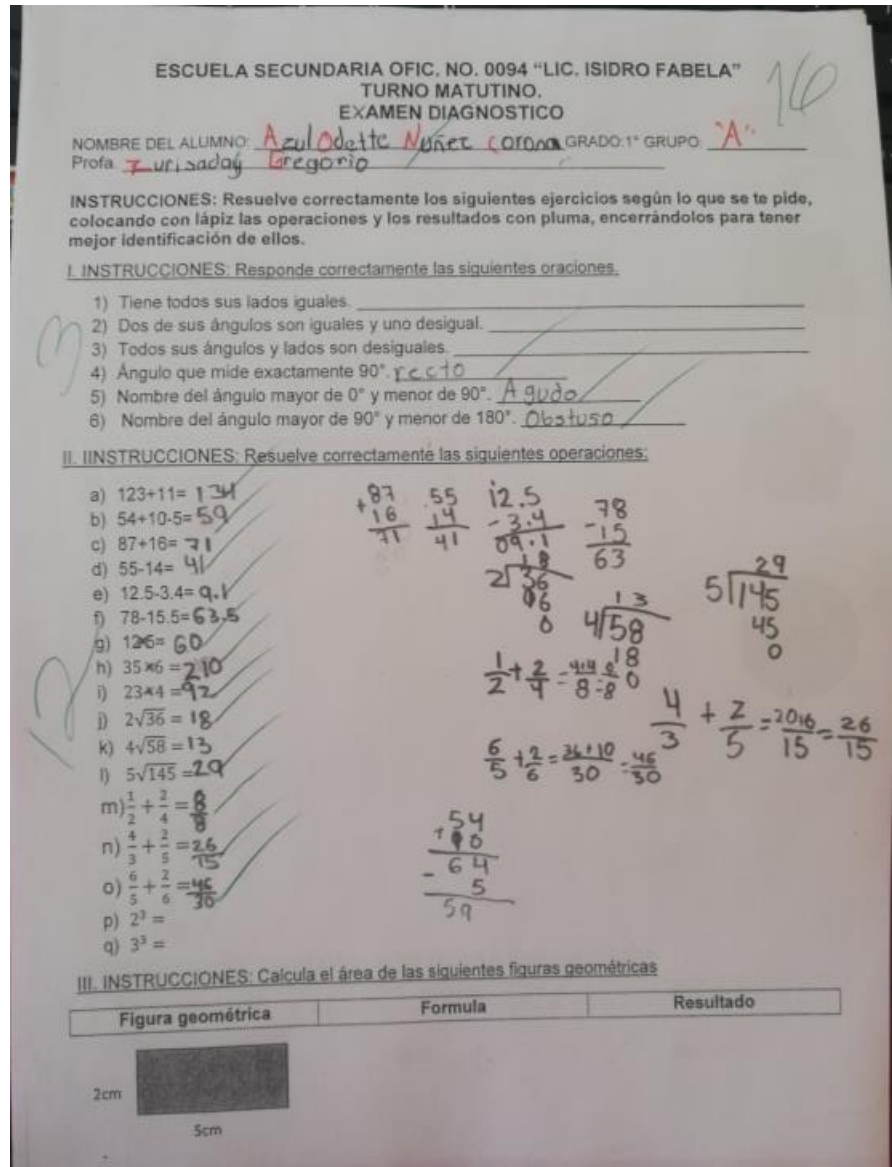 ESCUELA SECUNDARIA OFIC. NO. 0094 “LIC. ISIDRO FABELA”
TURNO MATUTINO.
EXAMEN DIAGNOSTICO
16
NOMBRE DEL ALUMNO: Azul Odette Nuñez Corona GRADO:1° GRUPO: "A"
Profa. Zurisaday Gregorio
INSTRUCCIONES: Resuelve correctamente los siguientes ejercicios según lo que se te pide,
colocando con lápiz las operaciones y los resultados con pluma, encerrándolos para tener
mejor identificación de ellos.
I. INSTRUCCIONES: Responde correctamente las siguientes oraciones.
1) Tiene todos sus lados iguales.
2) Dos de sus ángulos son iguales y uno desigual.
3) Todos sus ángulos y lados son desiguales.
3
4) Ángulo que mide exactamente 90°. recto
5) Nombre del ángulo mayor de 0° y menor de 90°. Agudo
6) Nombre del ángulo mayor de 90° y menor de 180°. Obstuso
II. IINSTRUCCIONES: Resuelve correctamente las siguientes operaciones:
a) 123+11= 134
b) 54+10-5= 59
c) 87+16= 71
d) 55-14= 41
e) 12.5-3.4= 9.1
f) 78-15.5= 63.5
g) 12×6= 60
h) 35×6 = 210
i) 23×4 = 92
j) 2√36 = 18
k) 4√58 = 13
l) 5√145 = 29
m) 1/2 + 2/4 = 8/8
n) 4/3 + 2/5 = 26/15
o) 6/5 + 2/6 = 46/30
p) 2³ =
q) 3³ =
+87 55 12.5 78
16 14 -3.4 -15
71 41 09.1 63
18 29
2√36 13 5√145
06 4√58 45
0 18 0
0
1/2 + 2/4 = 4+4/8 = 8/8
4/3 + 2/5 = 20+6/15 = 26/15
6/5 + 2/6 = 36+10/30 = 46/30
54
+10
64
- 5
59
12
III. INSTRUCCIONES: Calcula el área de las siguientes figuras geométricas
Figura geométrica Formula Resultado
2cm
5cm